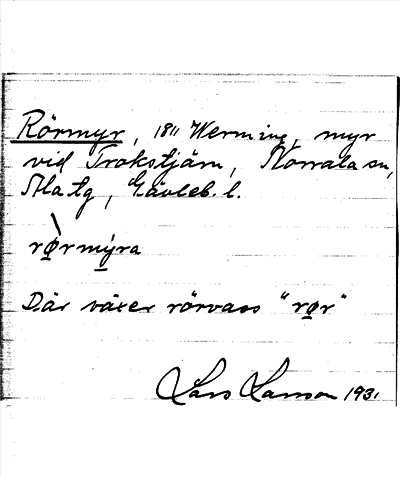 Rörmyr, 1811 Werming, myr
vid Trokstjärn, Norrala sn,
Ala tg, Gävleb. l.
rø̀rmýra
Där växer rörvass "rør"
Lars Larsson 1931